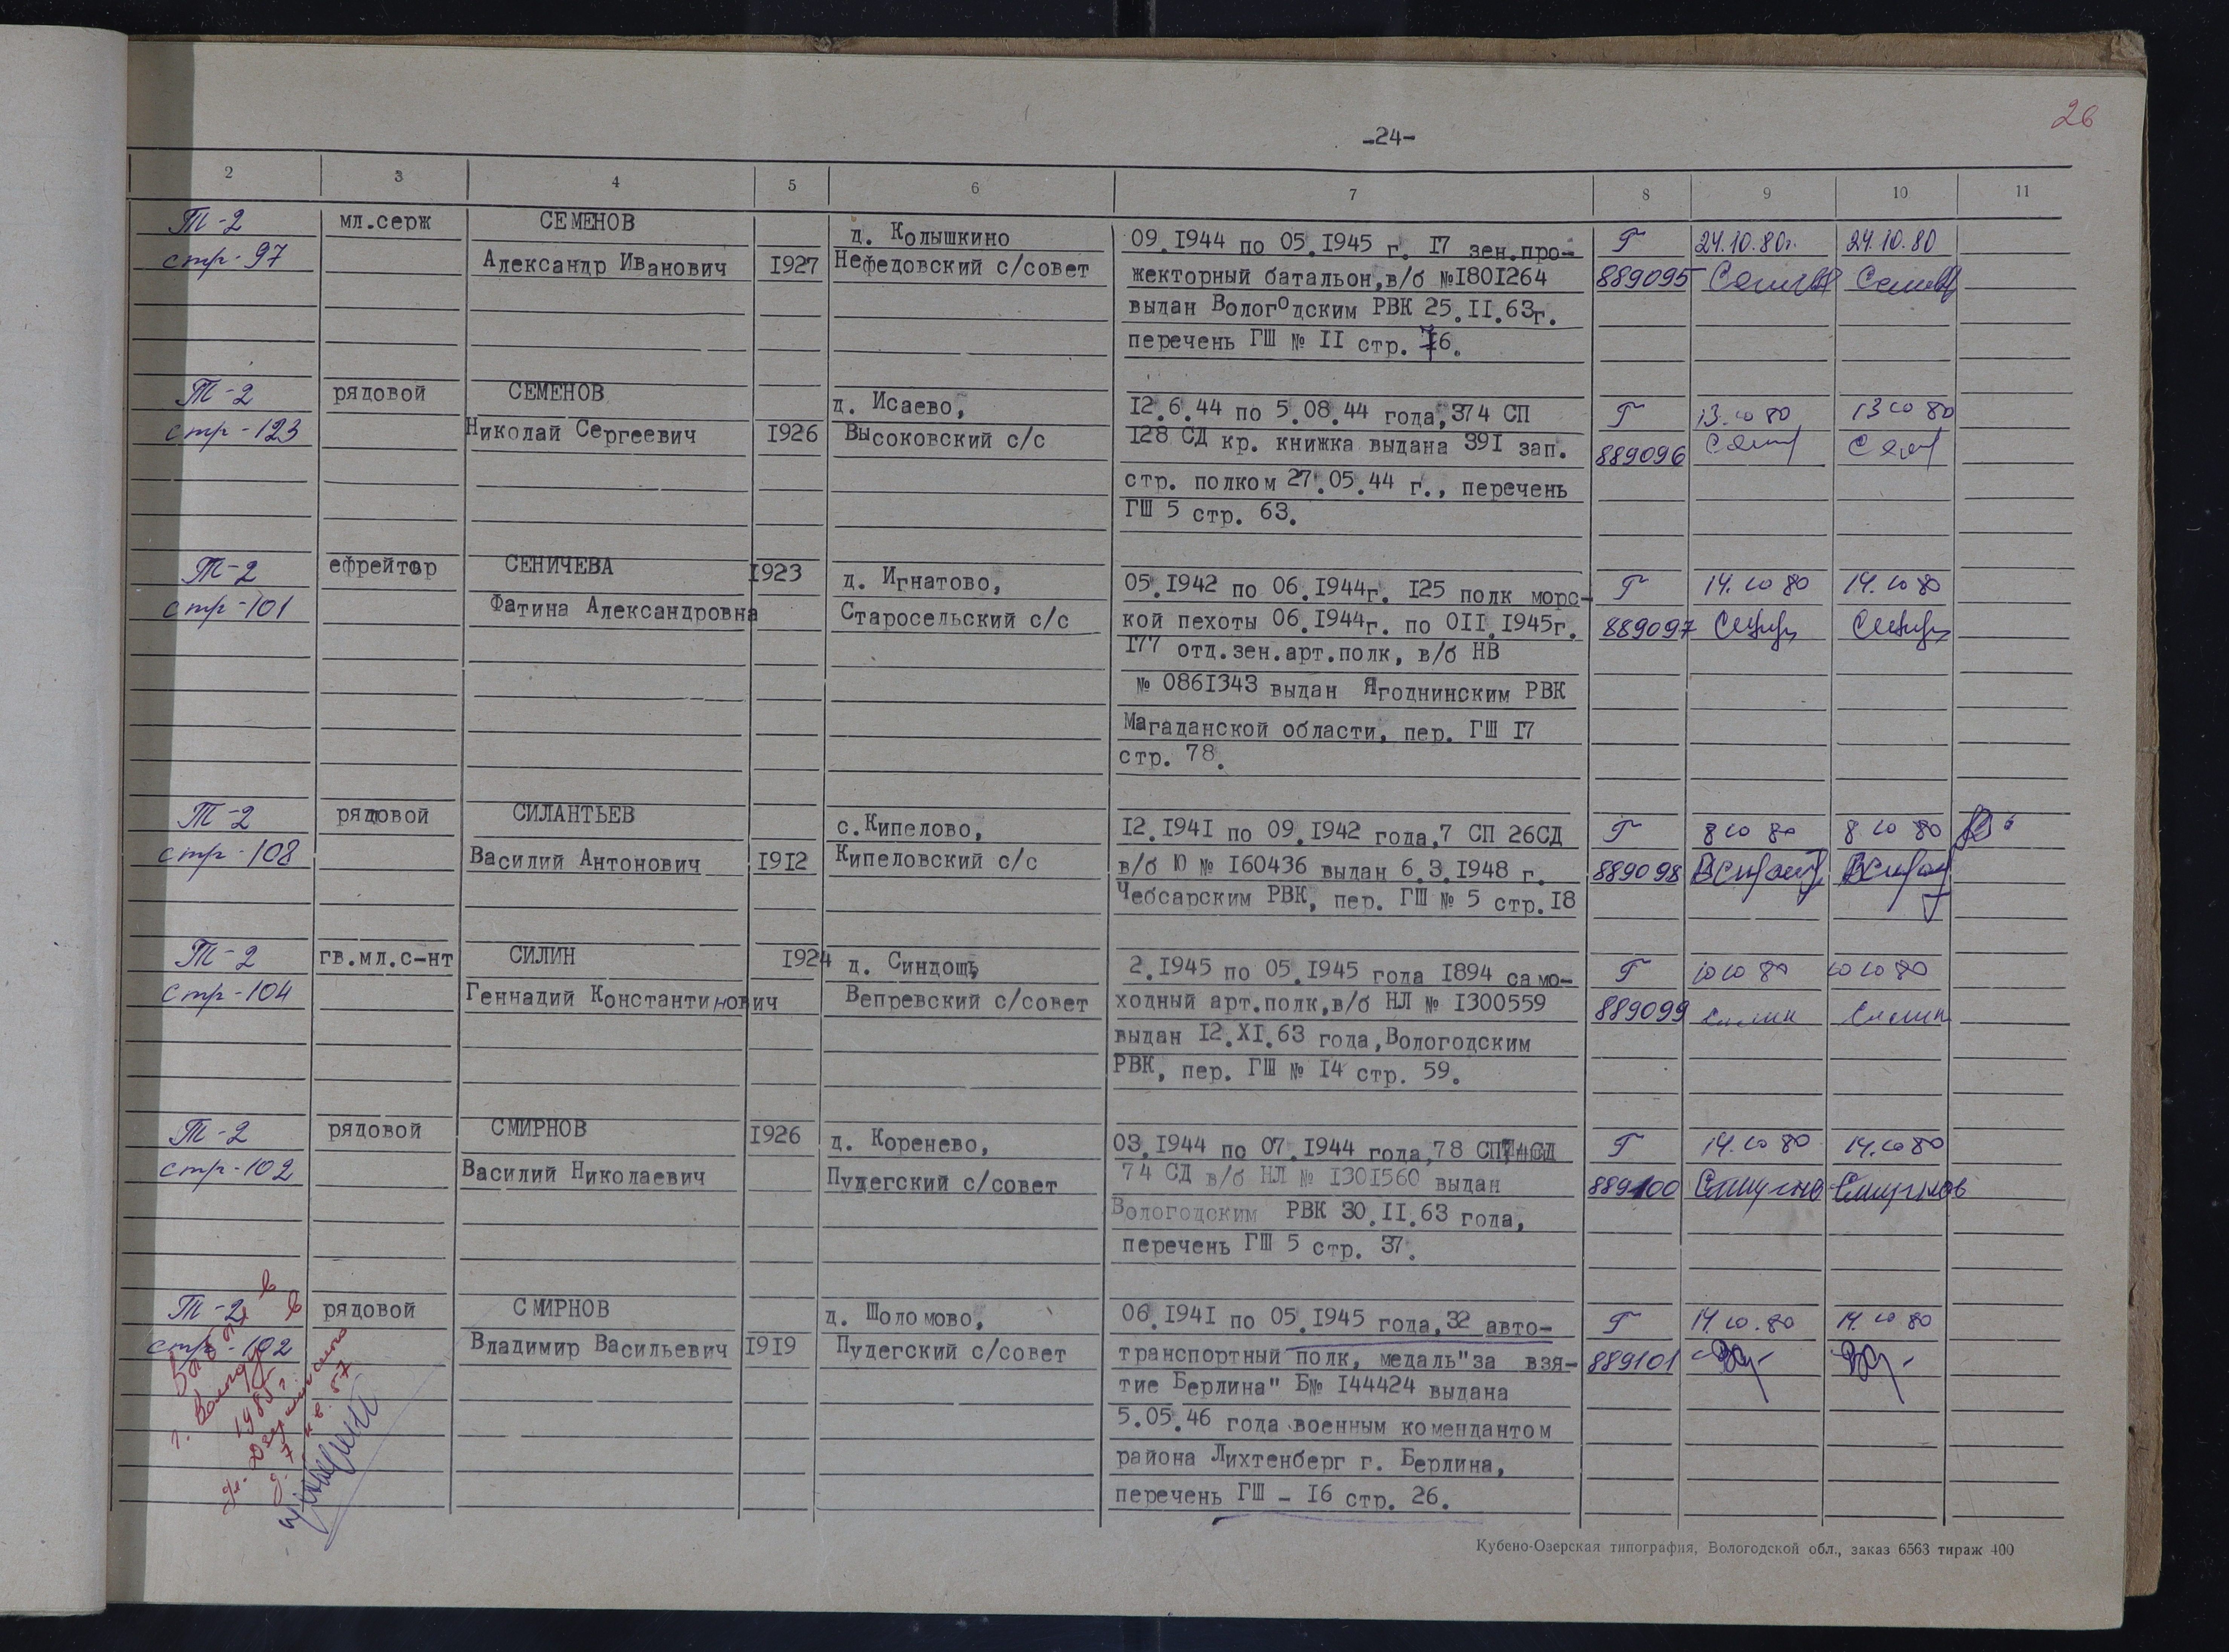 26
-24-
2 3 4 5 6 7 8 9 10 11
Т-2 мл.серж СЕМЕНОВ д. Колышкино 09.1944 по 05.1945 г. 17 зен.про- Г 24.10.80г. 24.10.80
стр-97 Александр Иванович 1927 Нефедовский с/совет жекторный батальон,в/б №1801264 889095
выдан Вологодским РВК 25.II.63г.
перечень ГШ № II стр. 76.
Т-2 рядовой СЕМЕНОВ д. Исаево, 12.6.44 по 5.08.44 года,374 СП Г 13.10 80 13 10 80
стр-123 Николай Сергеевич 1926 Высоковский с/с 128 СД кр. книжка выдана 391 зап. 889096
стр. полком 27.05.44 г., перечень
ГШ 5 стр. 63.
Т-2 ефрейтор СЕНИЧЕВА 1923 д. Игнатово, 05.1942 по 06.1944г. 125 полк морс- Г 14.10 80 14.10 80
стр-101 Фатина Александровна Старосельский с/с кой пехоты 06.1944г. по 0II.1945г. 889097
177 отд.зен.арт.полк, в/б НВ
№ 0861343 выдан Ягоднинским РВК
Магаданской области, пер. ГШ 17
стр. 78.
Т-2 рядовой СИЛАНТЬЕВ с.Кипелово, 12.1941 по 09.1942 года,7 СП 26СД Г 8 10 80 8.10 80
стр-108 Василий Антонович 1912 Кипеловский с/с в/б Ю № 160436 выдан 6.3.1948 г. 889098
Чебсарским РВК, пер. ГШ № 5 стр.18
Т-2 гв.мл.с-нт СИЛИН 1924 д. Синдошь, 2.1945 по 05.1945 года 1894 само- Г 10 10 80 10 10 80
стр-104 Геннадий Константинович Вепревский с/совет ходный арт.полк,в/б НЛ № 1300559 889099 Силин Силин
выдан 12.XI.63 года,Вологодским
РВК, пер. ГШ № 14 стр. 59.
Т-2 рядовой СМИРНОВ 1926 д. Коренево, 03.1944 по 07.1944 года,78 СП Г 14.10 80 14.10 80
стр-102 Василий Николаевич Пудегский с/совет 74 СД в/б НЛ № 1301560 выдан 889100 Смирнов
Вологодским РВК 30.II.63 года,
перечень ГШ 5 стр. 37.
Т-2 рядовой СМИРНОВ д. Шоломово, 06.1941 по 05.1945 года,32 авто- Г 14.10.80 14.10 80
стр-102 Владимир Васильевич 1919 Пудегский с/совет транспортный полк, медаль"за взя- 889101
тие Берлина" Б№ 144424 выдана
5.05.46 года военным комендантом
района Лихтенберг г. Берлина,
перечень ГШ - 16 стр. 26.
Выбыл в
г. Вологду
Кубено-Озерская типография, Вологодской обл., заказ 6563 тираж 400